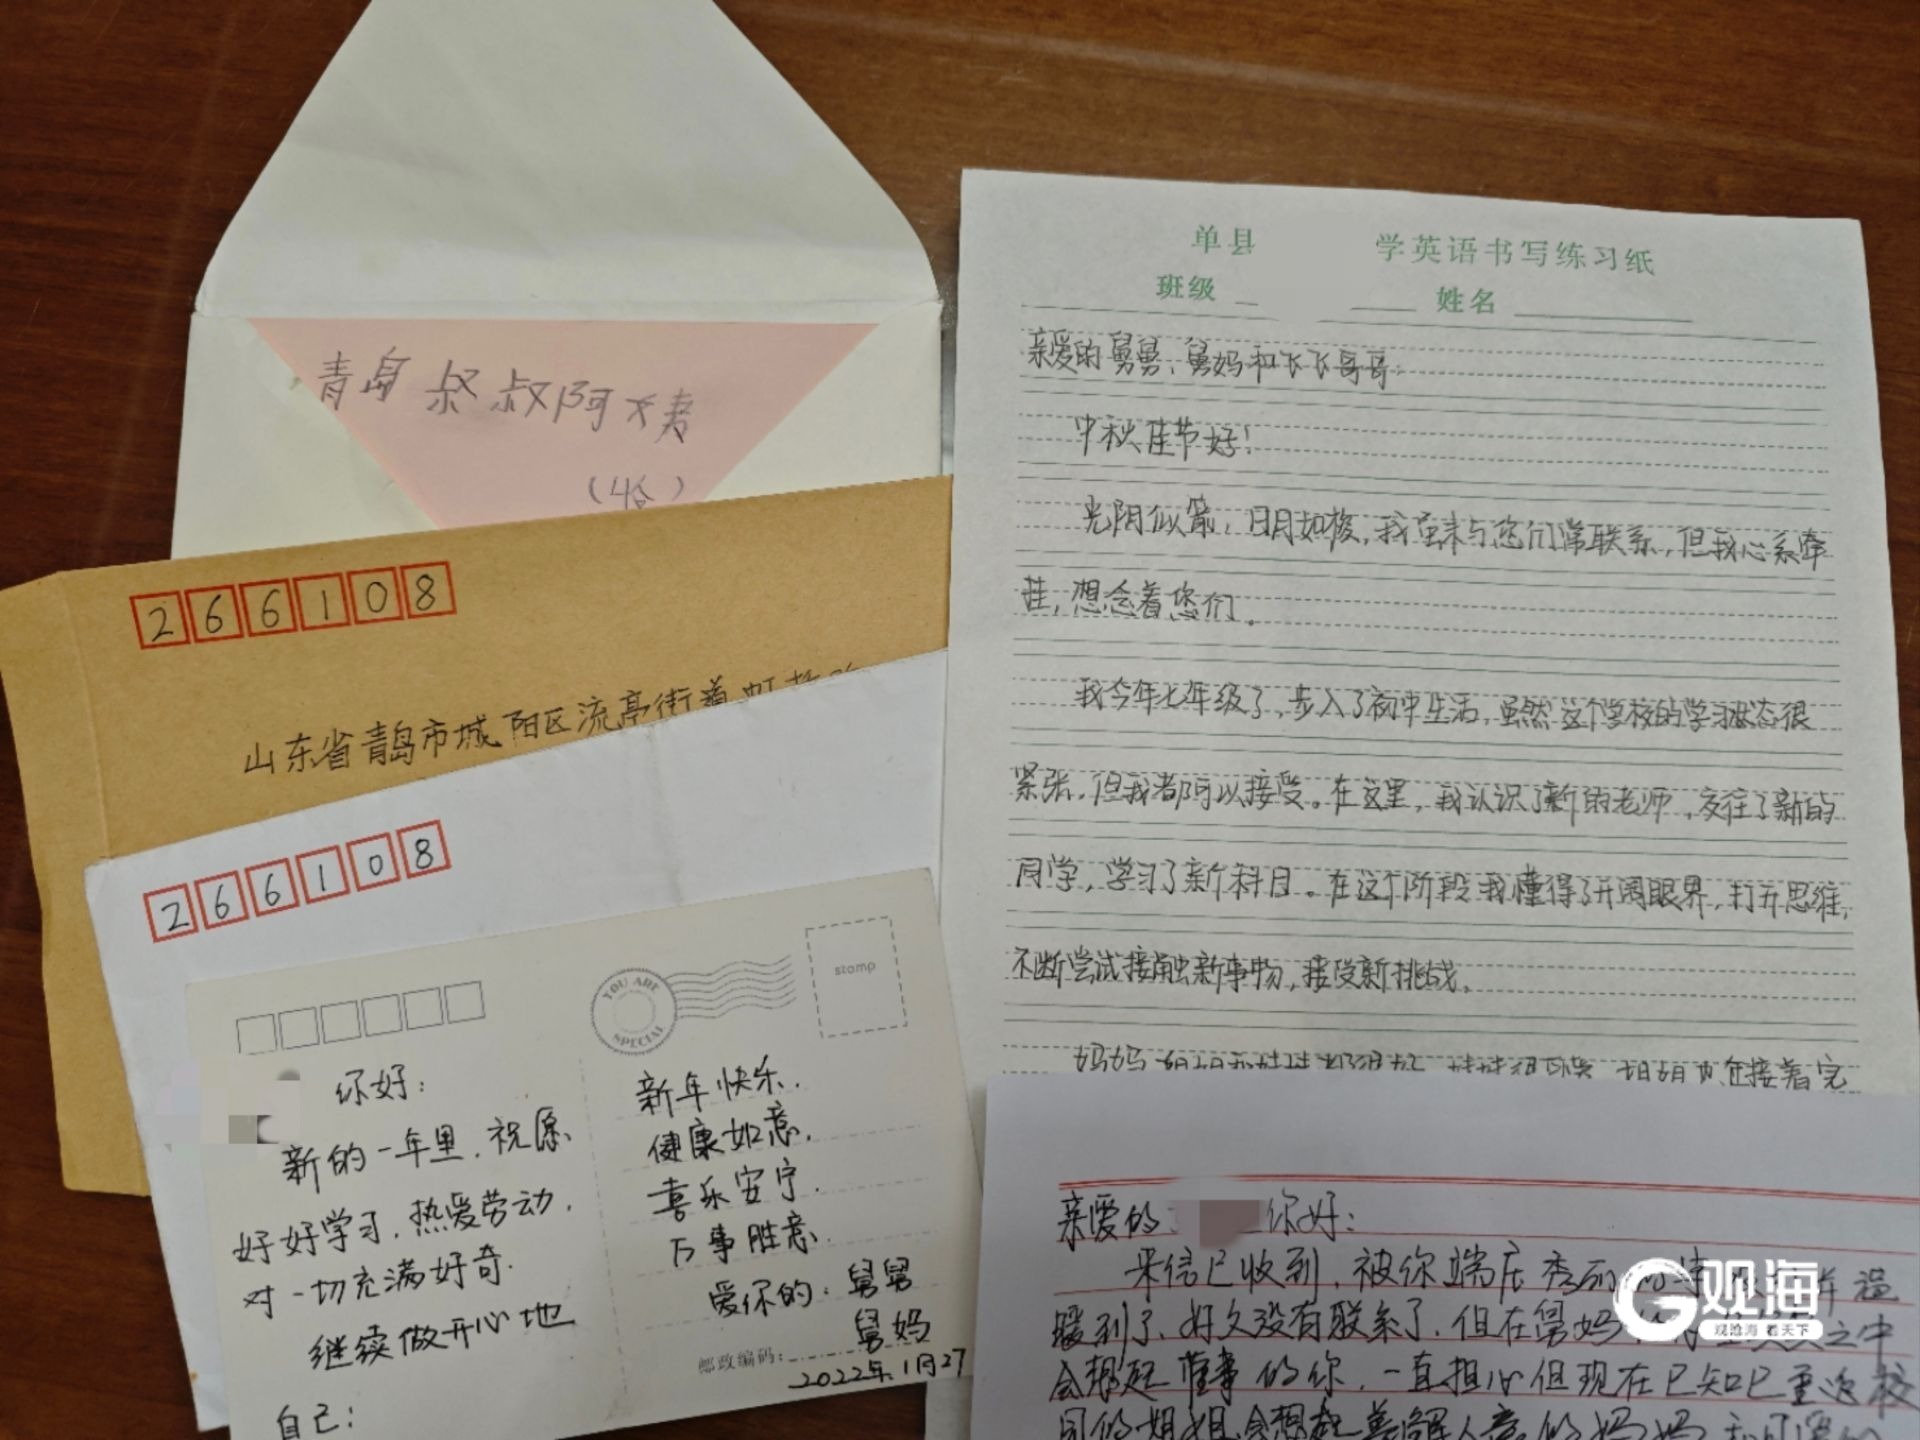 青岛叔叔阿姨
(收)
266108
山东省青岛市城阳区流亭街道
266108
stamp
YOU ARE
SPECIAL
你好：
新的一年里，祝愿
好好学习，热爱劳动，
对一切充满好奇.
继续做开心地
自己：
新年快乐，
健康如意，
喜乐安宁.
万事胜意.
爱你的：舅舅
舅妈
邮政编码：
2022年.1月27
单县
学英语书写练习纸
班级
姓名
亲爱的舅舅、舅妈和飞飞哥哥：
中秋佳节好！
光阴似箭，日月如梭，我虽未与您们常联系，但我心系牵
挂，想念着您们。
我今年七年级了，步入了初中生活，虽然这个学校的学习状态很
紧张，但我都可以接受。在这里，我认识了新的老师，交往了新的
同学，学习了新科目。在这个阶段我懂得了开阔眼界，打开思维，
不断尝试接触新事物，接受新挑战。
亲爱的
你好：
来信已收到，被你端庄秀丽的
暖到了、好久没有联系了，但在舅妈
之中
会想起懂事的你，一直担心但现在已知已重返校
园的姐姐，会想起善解人意的妈妈
观海
观沧海 看天下